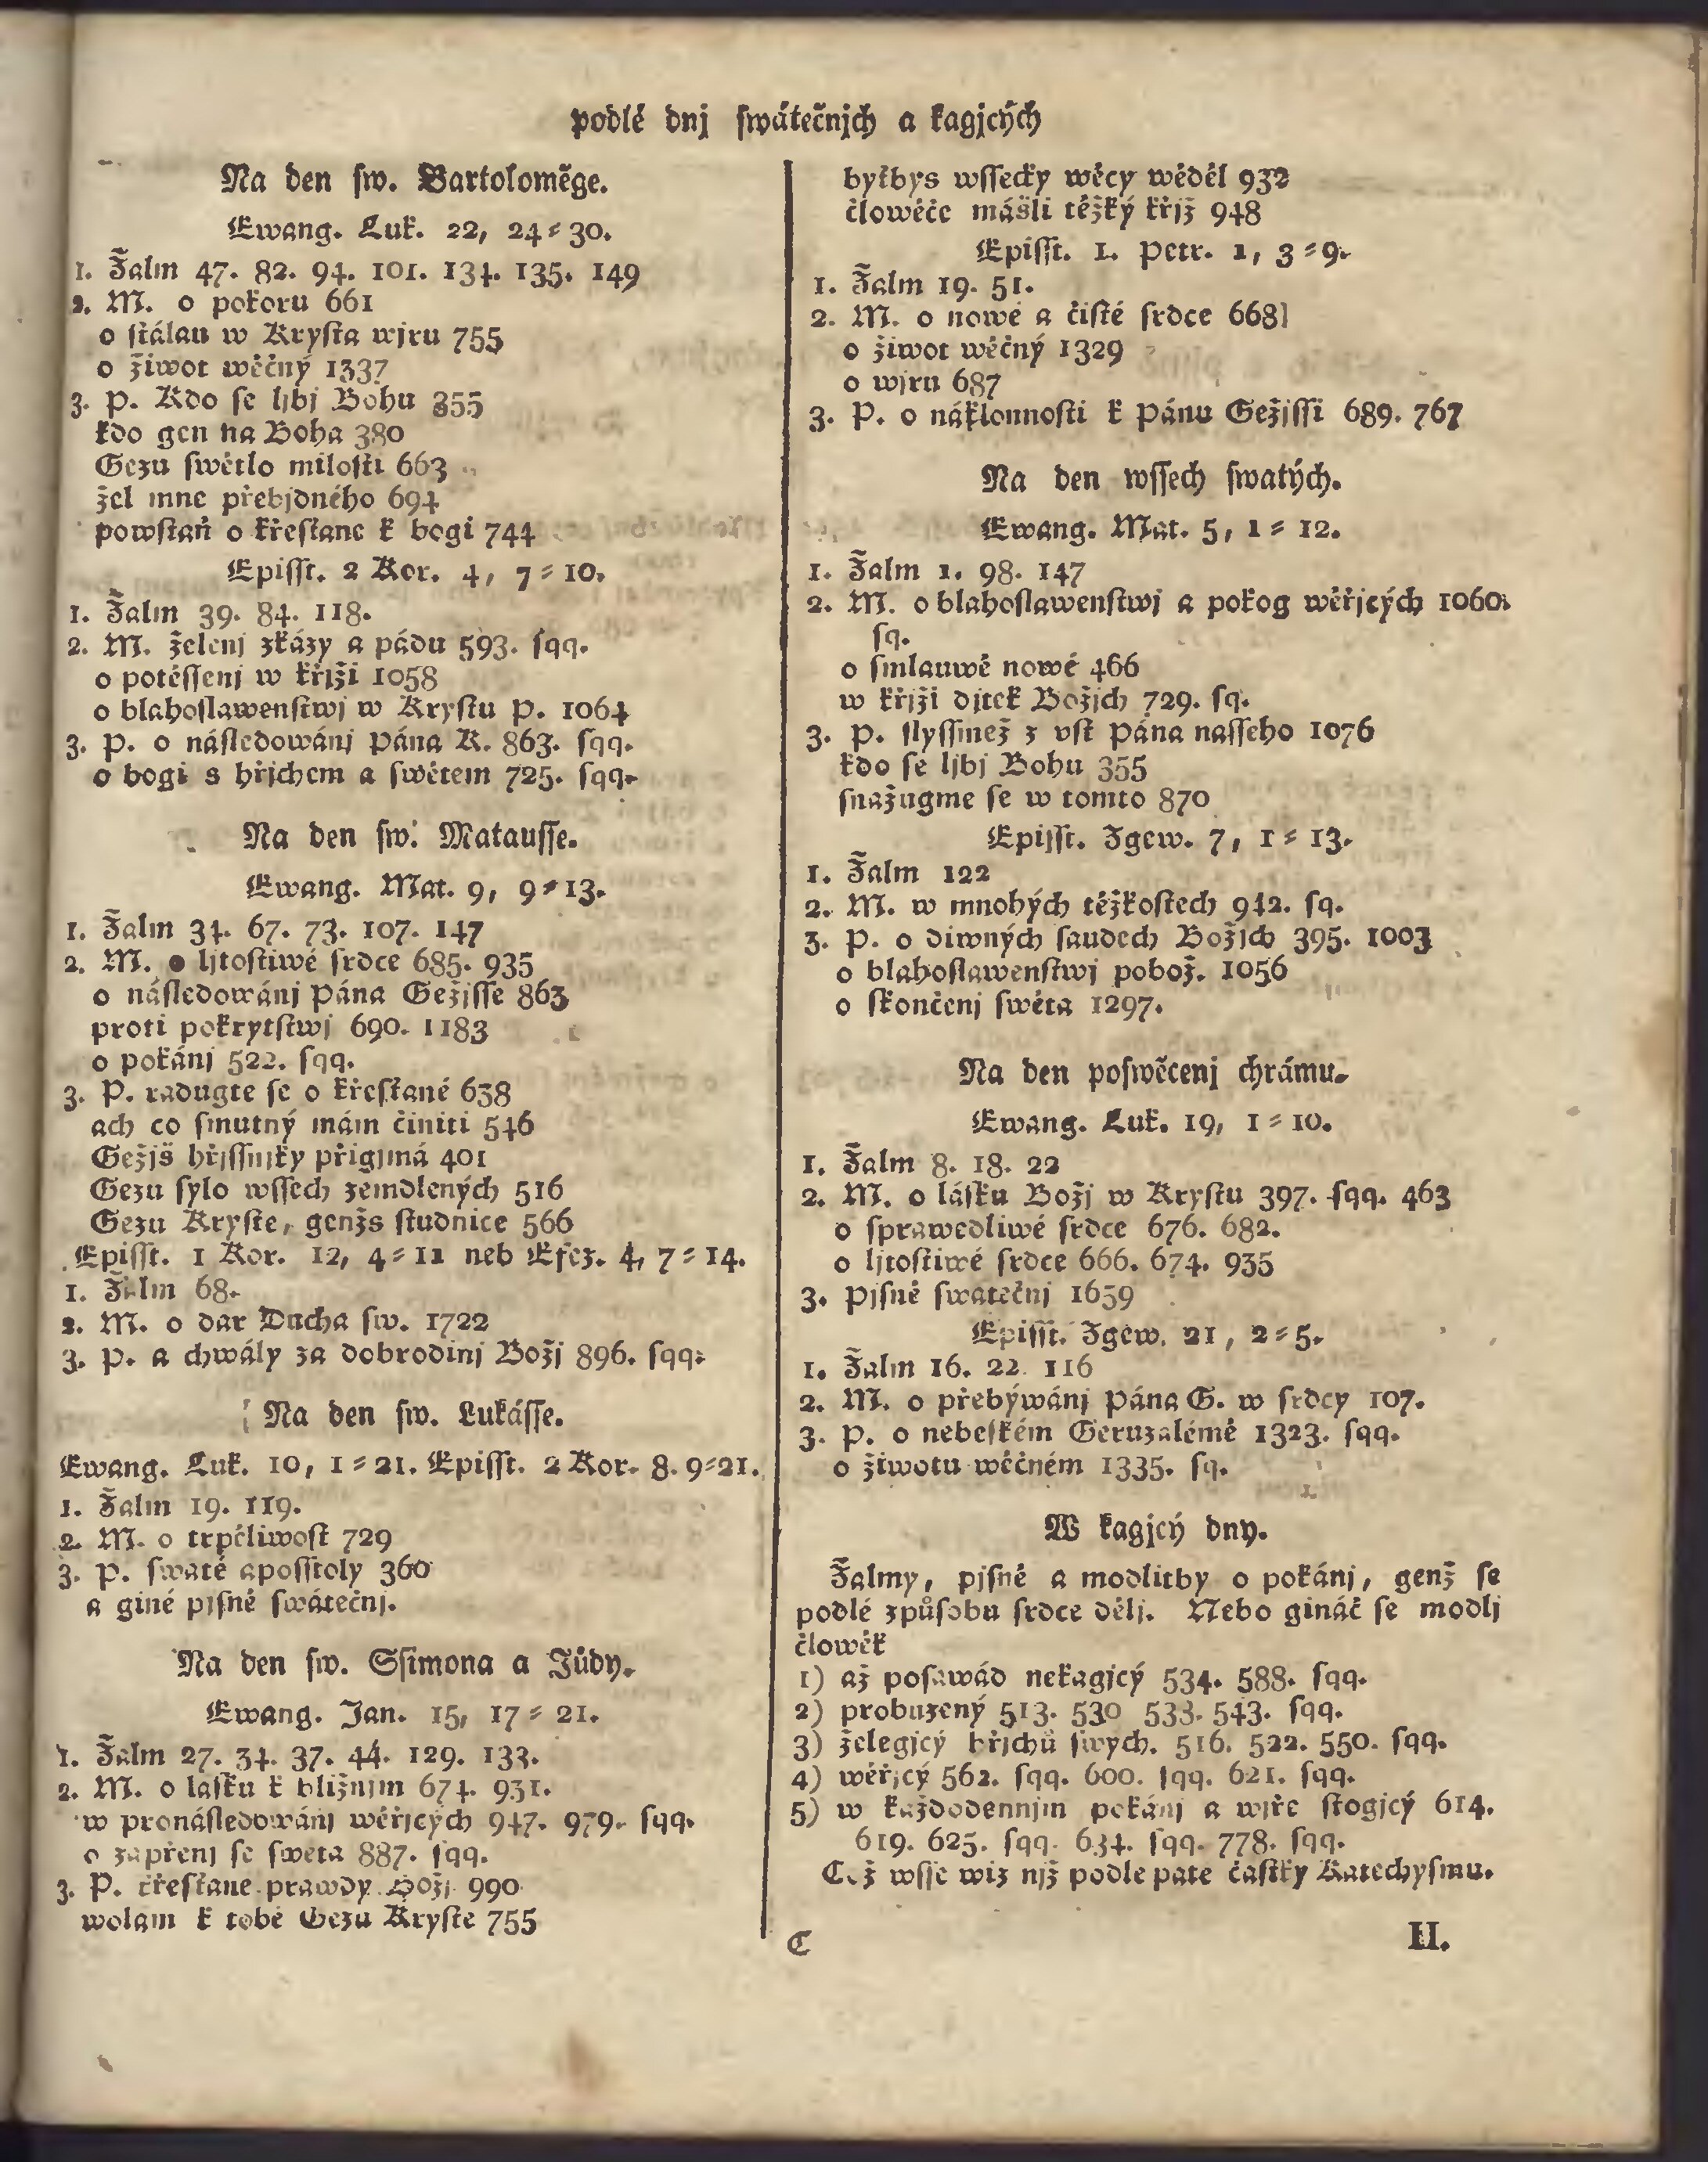 podlé dnj ſwátečnjch a kagjcých
Na den ſw. Bartoloměge.
Ewang. Luk. 22, 24⸗30.
1. Žalm 47. 82. 94. 101. 134. 135. 149
2. M. o pokoru 661
o ſtálau w Kryſta wjru 755
o žiwot wěčný 1337
3. P. Kdo ſe ljbj Bohu 355
kdo gen na Boha 380
Gezu ſwětlo miloſti 663
žel mne přebjdného 694
powſtaň o křeſťane k bogi 744
Epiſſt. 2 Kor. 4, 7⸗10.
1. Žalm 39. 84. 118.
2. M. želenj zkázy a pádu 593. ſqq.
o potěſſenj w křjži 1058
o blahoſlawenſtwj w Kryſtu P. 1064
3. P. o náſledowánj Pána K. 863. ſqq.
o bogi s hřjchem a ſwětem 725. ſqq.
Na den ſw. Matauſſe.
Ewang. Mat. 9, 9⸗13.
1. Žalm 34. 67. 73. 107. 147
2. M. o ljtoſtiwé ſrdce 685. 935
o náſledowánj Pána Gežjſſe 863
proti pokrytſtwj 690. 1183
o pokánj 522. ſqq.
3. P. radugte ſe o křeſťané 638
ach co ſmutný mám činiti 546
Gežjš hřjſſnjky přigjmá 401
Gezu ſylo wſſech zemdlených 516
Gezu Kryſte, genžs ſtudnice 566
Epiſſt. 1 Kor. 12, 4⸗11 neb Efez. 4, 7⸗14.
1. Žalm 68.
2. M. o dar Ducha ſw. 1722
3. P. a chwály za dobrodinj Božj 896. ſqq.
Na den ſw. Lukáſſe.
Ewang. Luk. 10, 1⸗21. Epiſſt. 2 Kor. 8. 9⸗21.
1. Žalm 19. 119.
2. M. o trpěliwoſt 729
3. P. ſwaté apoſſtoly 360
a giné pjſně ſwátečnj.
Na den ſw. Sſimona a Jůdy.
Ewang. Jan. 15, 17⸗21.
1. Žalm 27. 34. 37. 44. 129. 133.
2. M. o laſku k bližnjm 674. 931.
w pronáſledowánj wěřjcých 947. 979. ſqq.
o zapřenj ſe ſweta 887. ſqq.
3. P. křeſťane prawdy Božj 990
wolam k tobě Gezu Kryſte 755
byťbys wſſecky wěcy wěděl 932
člowěče mášli těžký křjž 948
Epiſſt. 1. Petr. 1, 3⸗9.
1. Žalm 19. 51.
2. M. o nowé a čiſté ſrdce 668
o žiwot wěčný 1329
o wjru 687
3. P. o náklonnoſti k Pánu Gežjſſi 689. 767
Na den wſſech ſwatých.
Ewang. Mat. 5, 1⸗12.
1. Žalm 1. 98. 147
2. M. o blahoſlawenſtwj a pokog wěřjcých 1060.
ſq.
o ſmlauwě nowé 466
w křjži djtek Božjch 729. ſq.
3. P. ſlyſſmež z vſt Pána naſſeho 1076
kdo ſe ljbj Bohu 355
ſnažugme ſe w tomto 870
Epiſſt. Zgew. 7, 1⸗13.
1. Žalm 122
2. M. w mnohých těžkoſtech 942. ſq.
3. P. o diwných ſaudech Božjch 395. 1003
o blahoſlawenſtwj pobož. 1056
o ſkončenj ſwěta 1297.
Na den poſwěcenj chrámu.
Ewang. Luk. 19, 1⸗10.
1. Žalm 8. 18. 22
2. M. o láſku Božj w Kryſtu 397. ſqq. 463
o ſprawedliwé ſrdce 676. 682.
o ljtoſtiwé ſrdce 666. 674. 935
3. Pjſně ſwatečnj 1659
Epiſſt. Zgew. 21, 2⸗5.
1. Žalm 16. 22. 116
2. M. o přebýwánj Pána G. w ſrdcy 107.
3. P. o nebeſkém Geruzalémě 1323. ſqq.
o žiwotu wěčném 1335. ſq.
W kagjcý dny.
Žalmy, pjſně a modlitby o pokánj, genž ſe
podlé způſobu ſrdce dělj. Nebo gináč ſe modlj
člowěk
1) až poſawád nekagicý 534. 588. ſqq.
2) probuzený 513. 530 533. 543. ſqq.
3) želegjcý hřjchů ſwych. 516. 522. 550. ſqq.
4) wěřjcý 562. ſqq. 600. ſqq. 621. ſqq.
5) w každodennjm pokánj a wjře ſtogjcý 614.
619. 625. ſqq. 634. ſqq. 778. ſqq.
Což wſſe wiz njž podle pate čaſtky Katechyſmu.
C II.